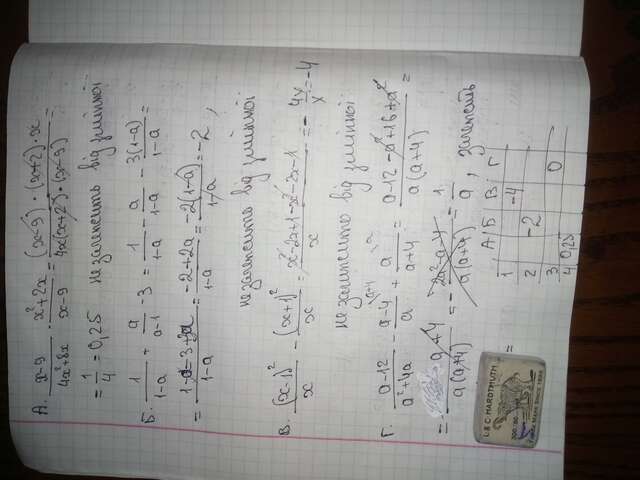 А. (x-9)/(4x²+8x) · (x²+2x)/(x-9) = ((x-9)·(x+2)·x)/(4x(x+2)·(x-9)) =
= 1/4 = 0,25 не залежить від змінної
Б. 1/(1-a) + a/(a-1) - 3 = 1/(1-a) - a/(1-a) - 3(1-a)/(1-a) =
= (1-a-3+3a)/(1-a) = (-2+2a)/(1-a) = -2(1-a)/(1-a) = -2,
не залежить від змінної
В. (x-1)²/x - (x+1)²/x = (x²-2x+1-x²-2x-1)/x = -4x/x = -4
не залежить від змінної
Г. (a-12)/(a²+4a) - (a-4)/a + a/(a+4) = (a-12-a²+16+a²)/(a(a+4)) =
= (a+4)/(a(a+4)) = 1/a, залежить
А Б В Г
1
2 -2 -4
3 0
4 0,25
=
L&C HARDTMUTH
300/80